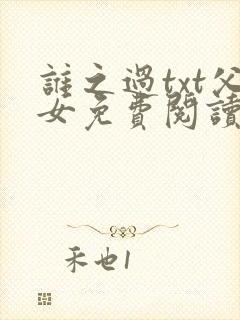 誰之過txt父
女免費閱讀
禾也1